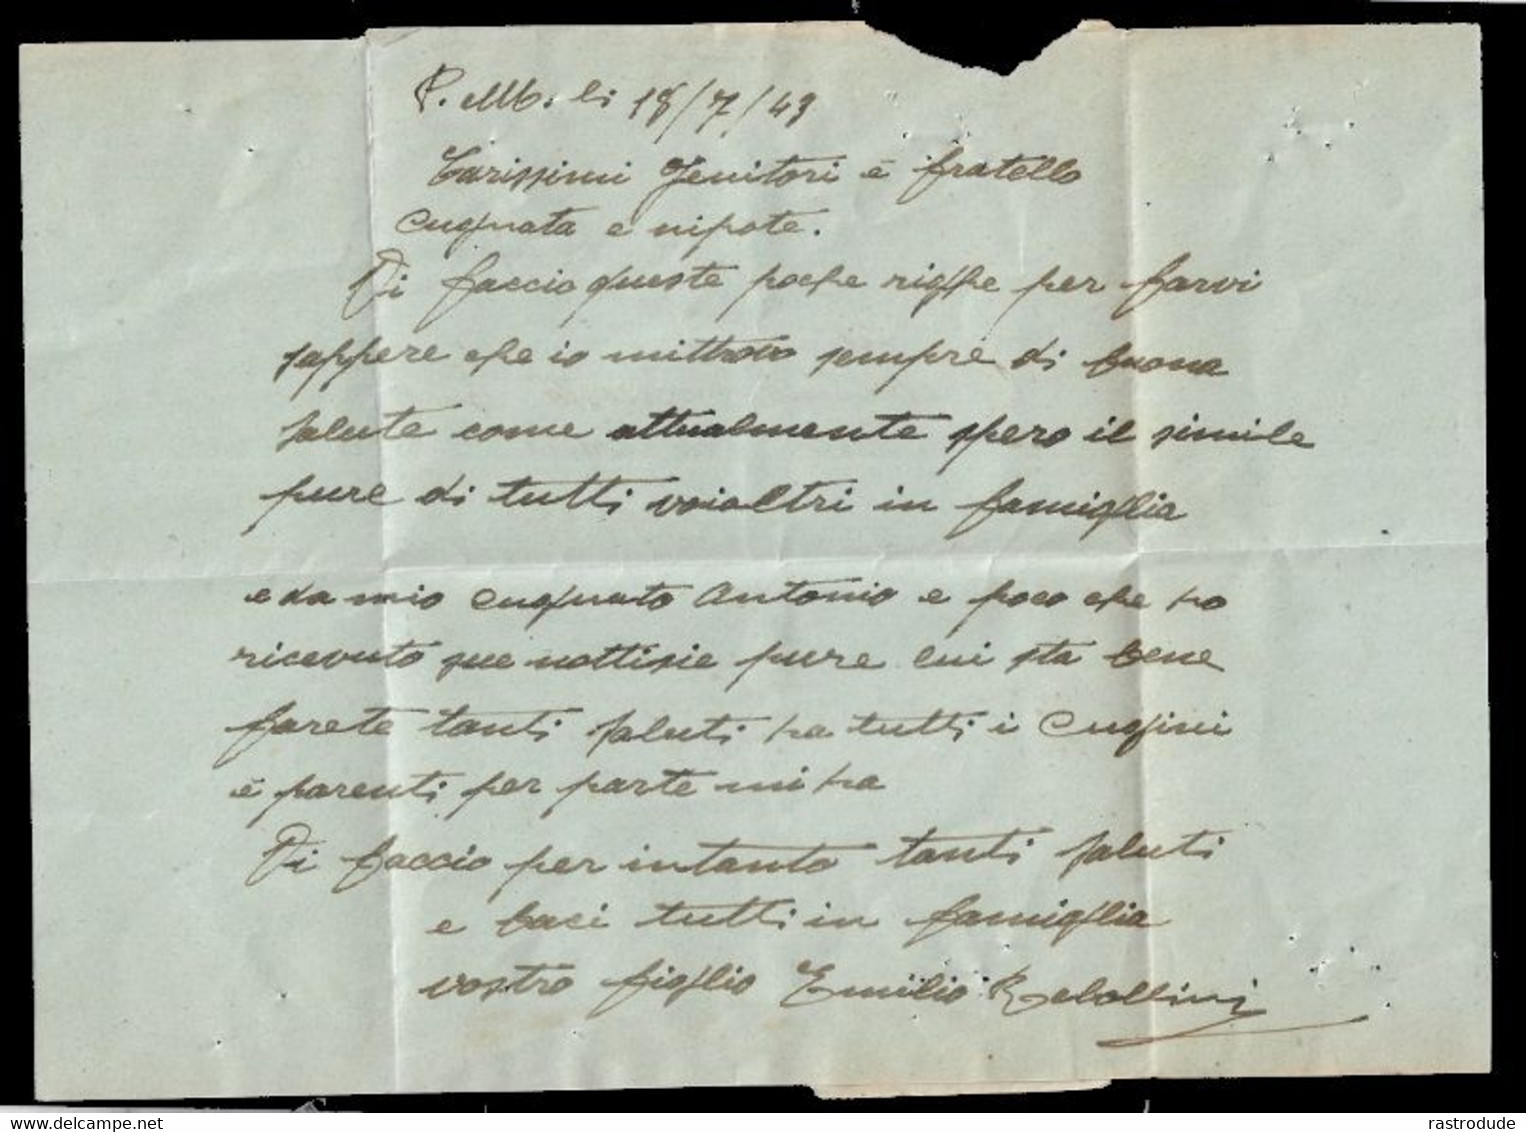 P. M. li 18/7/43
Carissimi Genitori e fratello
Cugnata e nipote.
Vi faccio queste poche righe per farvi
sappere che io mi trovo sempre di buona
salute come attualmente spero il simile
pure di tutti voialtri in famiglia
e da mio Cugnato Antonio e poco che ho
ricevuto sue nottisie pure lui sta bene
farete tanti saluti ha tutti i Cugini
e parenti per parte miha
Vi faccio per intanto tanti saluti
e baci tutti in famiglia
vostro figlio Emilio Rebollini
rastrodude